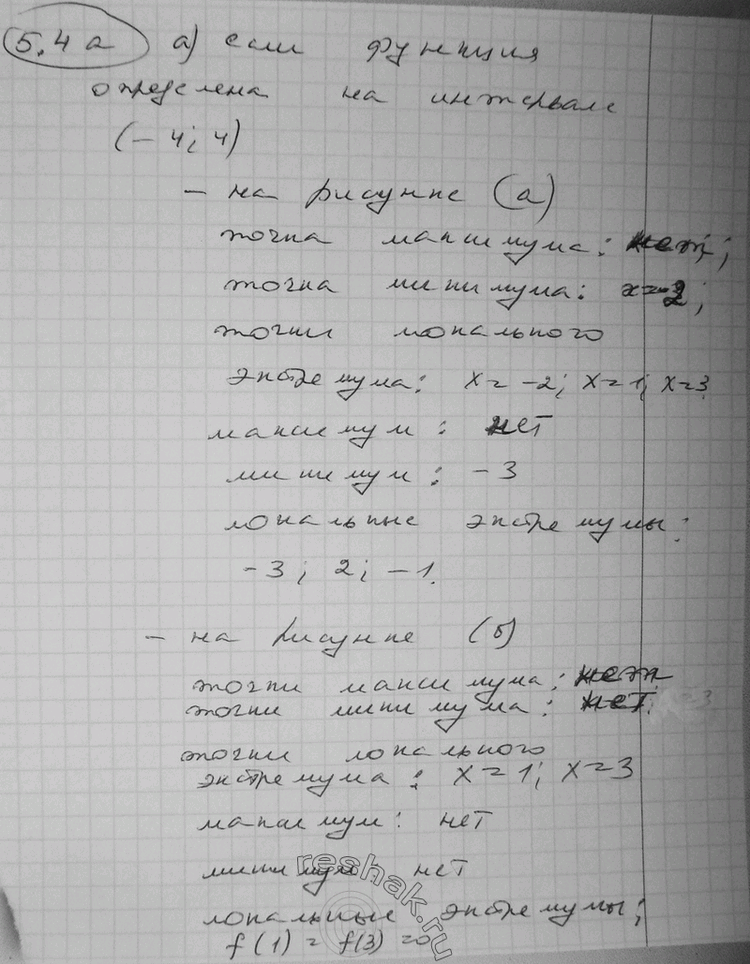 5.4а а) если функция
определена на интервале
(-4; 4)
- на рисунке (а)
точка максимума: нет;
точка минимума: x=-2;
точки локального
экстремума: x=-2; x=1; x=3
максимум: нет
минимум: -3
локальные экстремумы:
-3; 2; -1.
- на рисунке (б)
точки максимума: нет
точки минимума: нет.
точки локального
экстремума: x=1; x=3
максимум: нет
минимум нет
локальные экстремумы;
f(1) = f(3) =0
reshak.ru